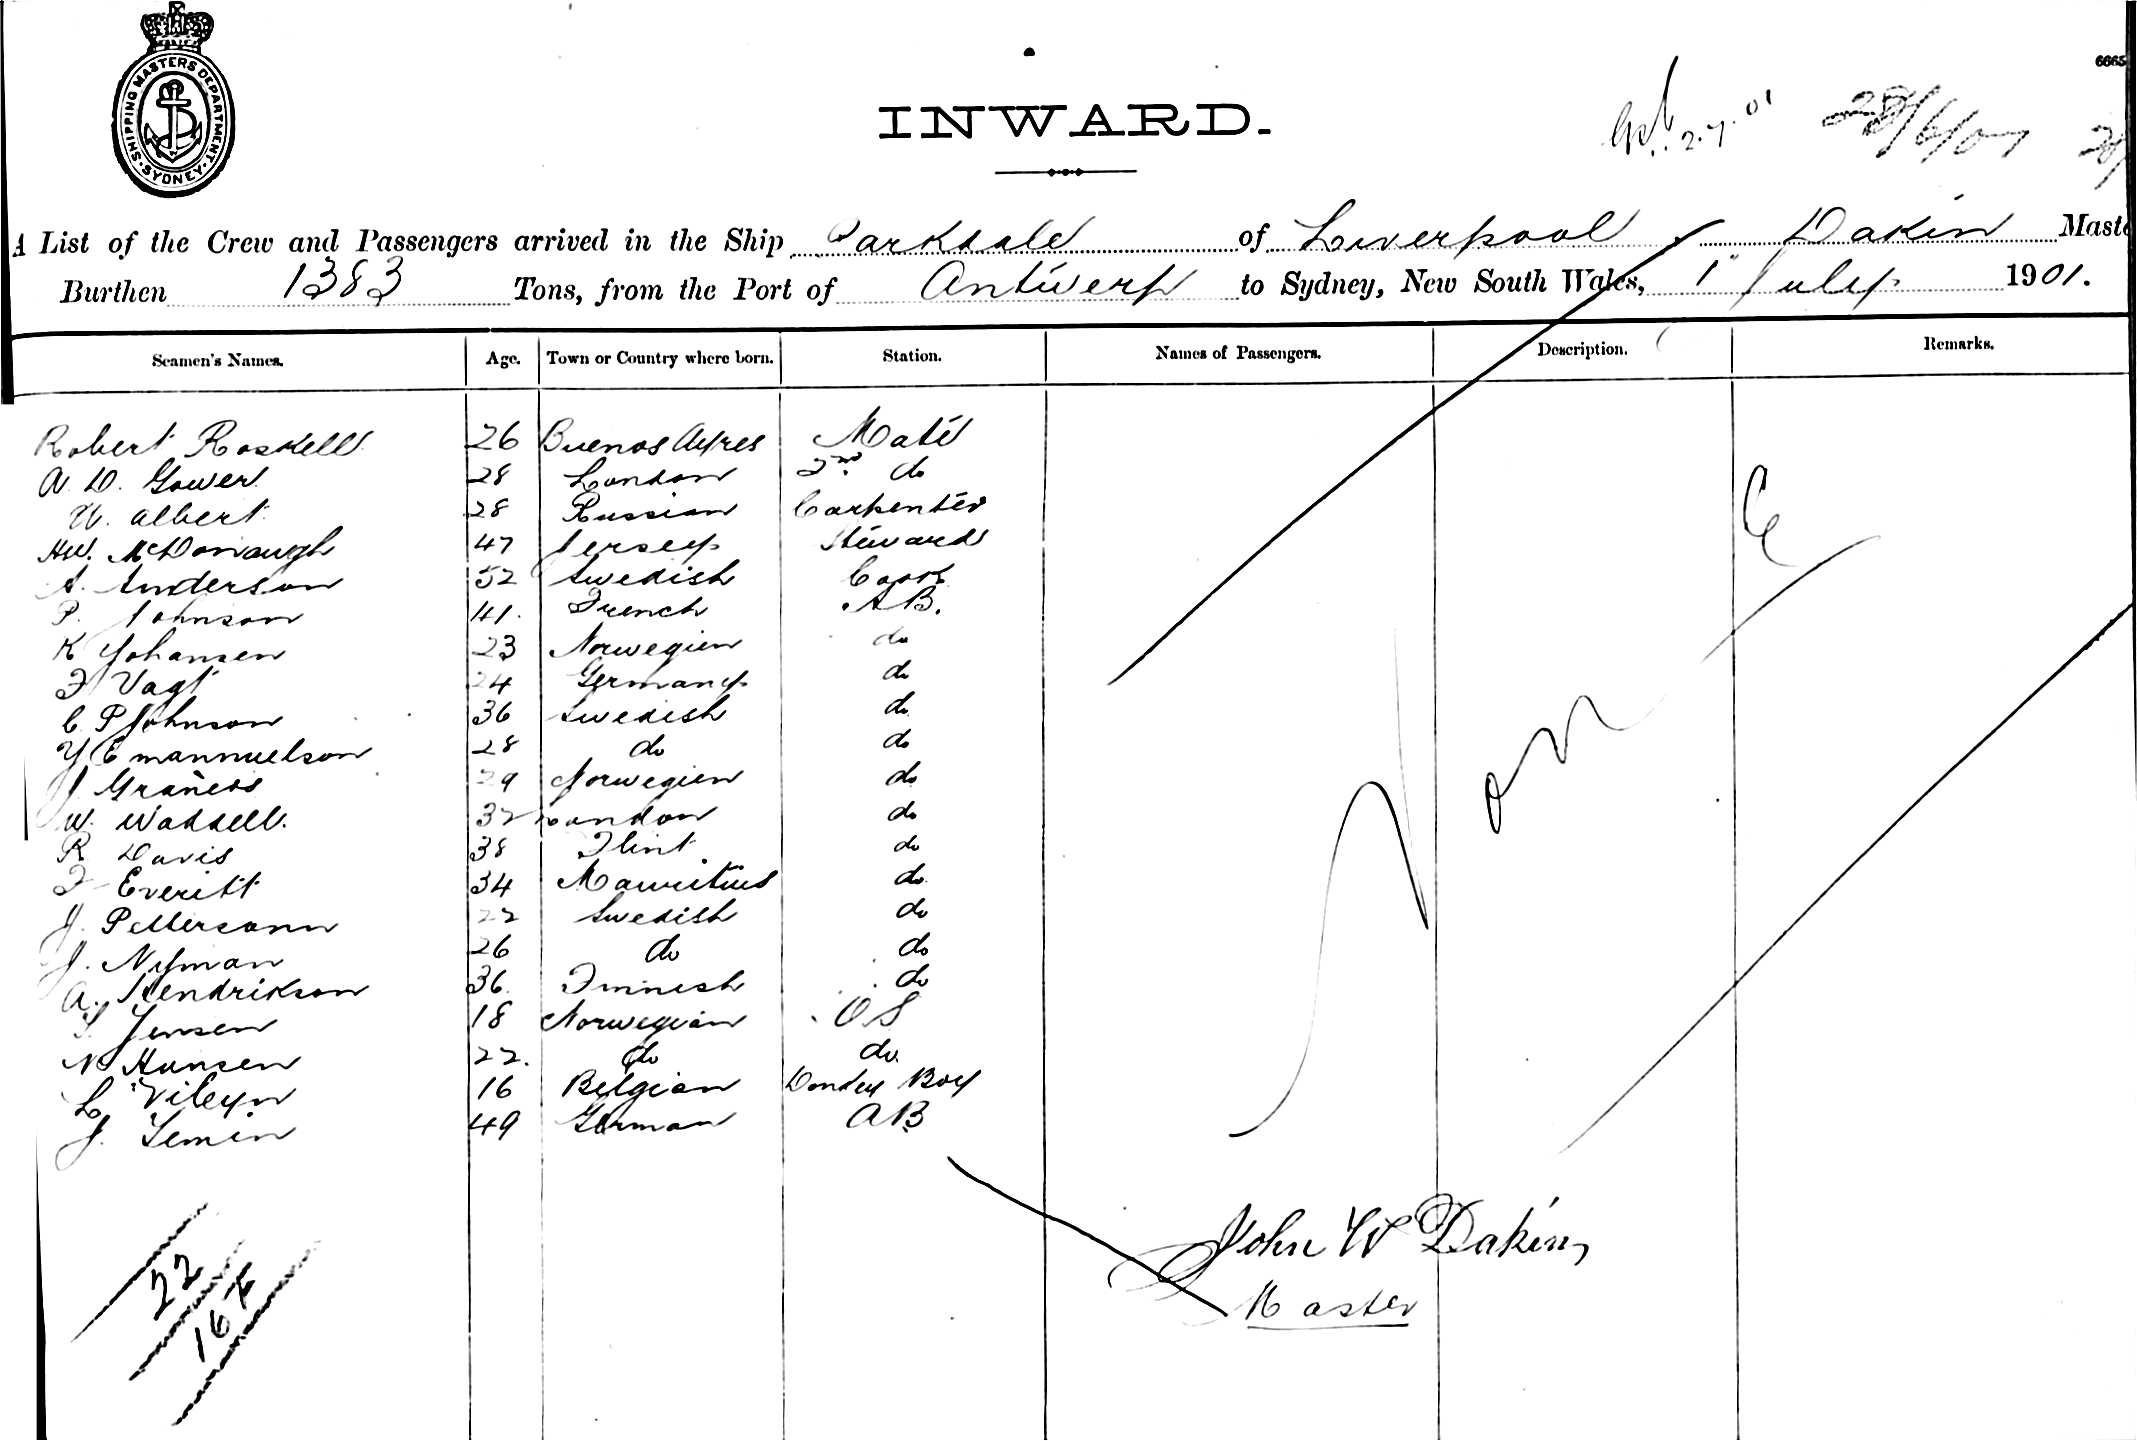 SHIPPING MASTERS DEPARTMENT. SYDNEY.
6665
INWARD.
2.7.01 28/6/01
A List of the Crew and Passengers arrived in the Ship Parkdale of Liverpool Dakin Maste
Burthen 1383 Tons, from the Port of Antwerp to Sydney, New South Wales, 1st July 1901.
Seamen's Names. Age. Town or Country where born. Station. Names of Passengers. Description. Remarks.
Robert Roskell 26 Buenos Ayres Mate
A. D. Gower 28 London 2nd do
U. Albert 28 Russian Carpenter
HW. McDonaugh 47 Jersey Steward
A. Anderson 52 Swedish Cook
P. Johnson 41. French AB.
K Johansen 23 Norwegien do
F Vagt 24 Germany do
C P Johnson 36 Swedish do
Y Emannuelson 28 do do
J 29 Norwegien do
W. Waddell. 32 London do
R Davis 38 Flint do
F Everitt 34 Mauritius do
J. Pettersonn 22 Swedish do
J. Nyman 26 do do
A. Hendrikson 36. Finnish do
Jensen 18 Norwegian OS
N Hansen 22. do do
L Vileyn 16 Belgian Donkey Boy
J. Temin 49 German AB
None
22
16
John W Dakin,
Master